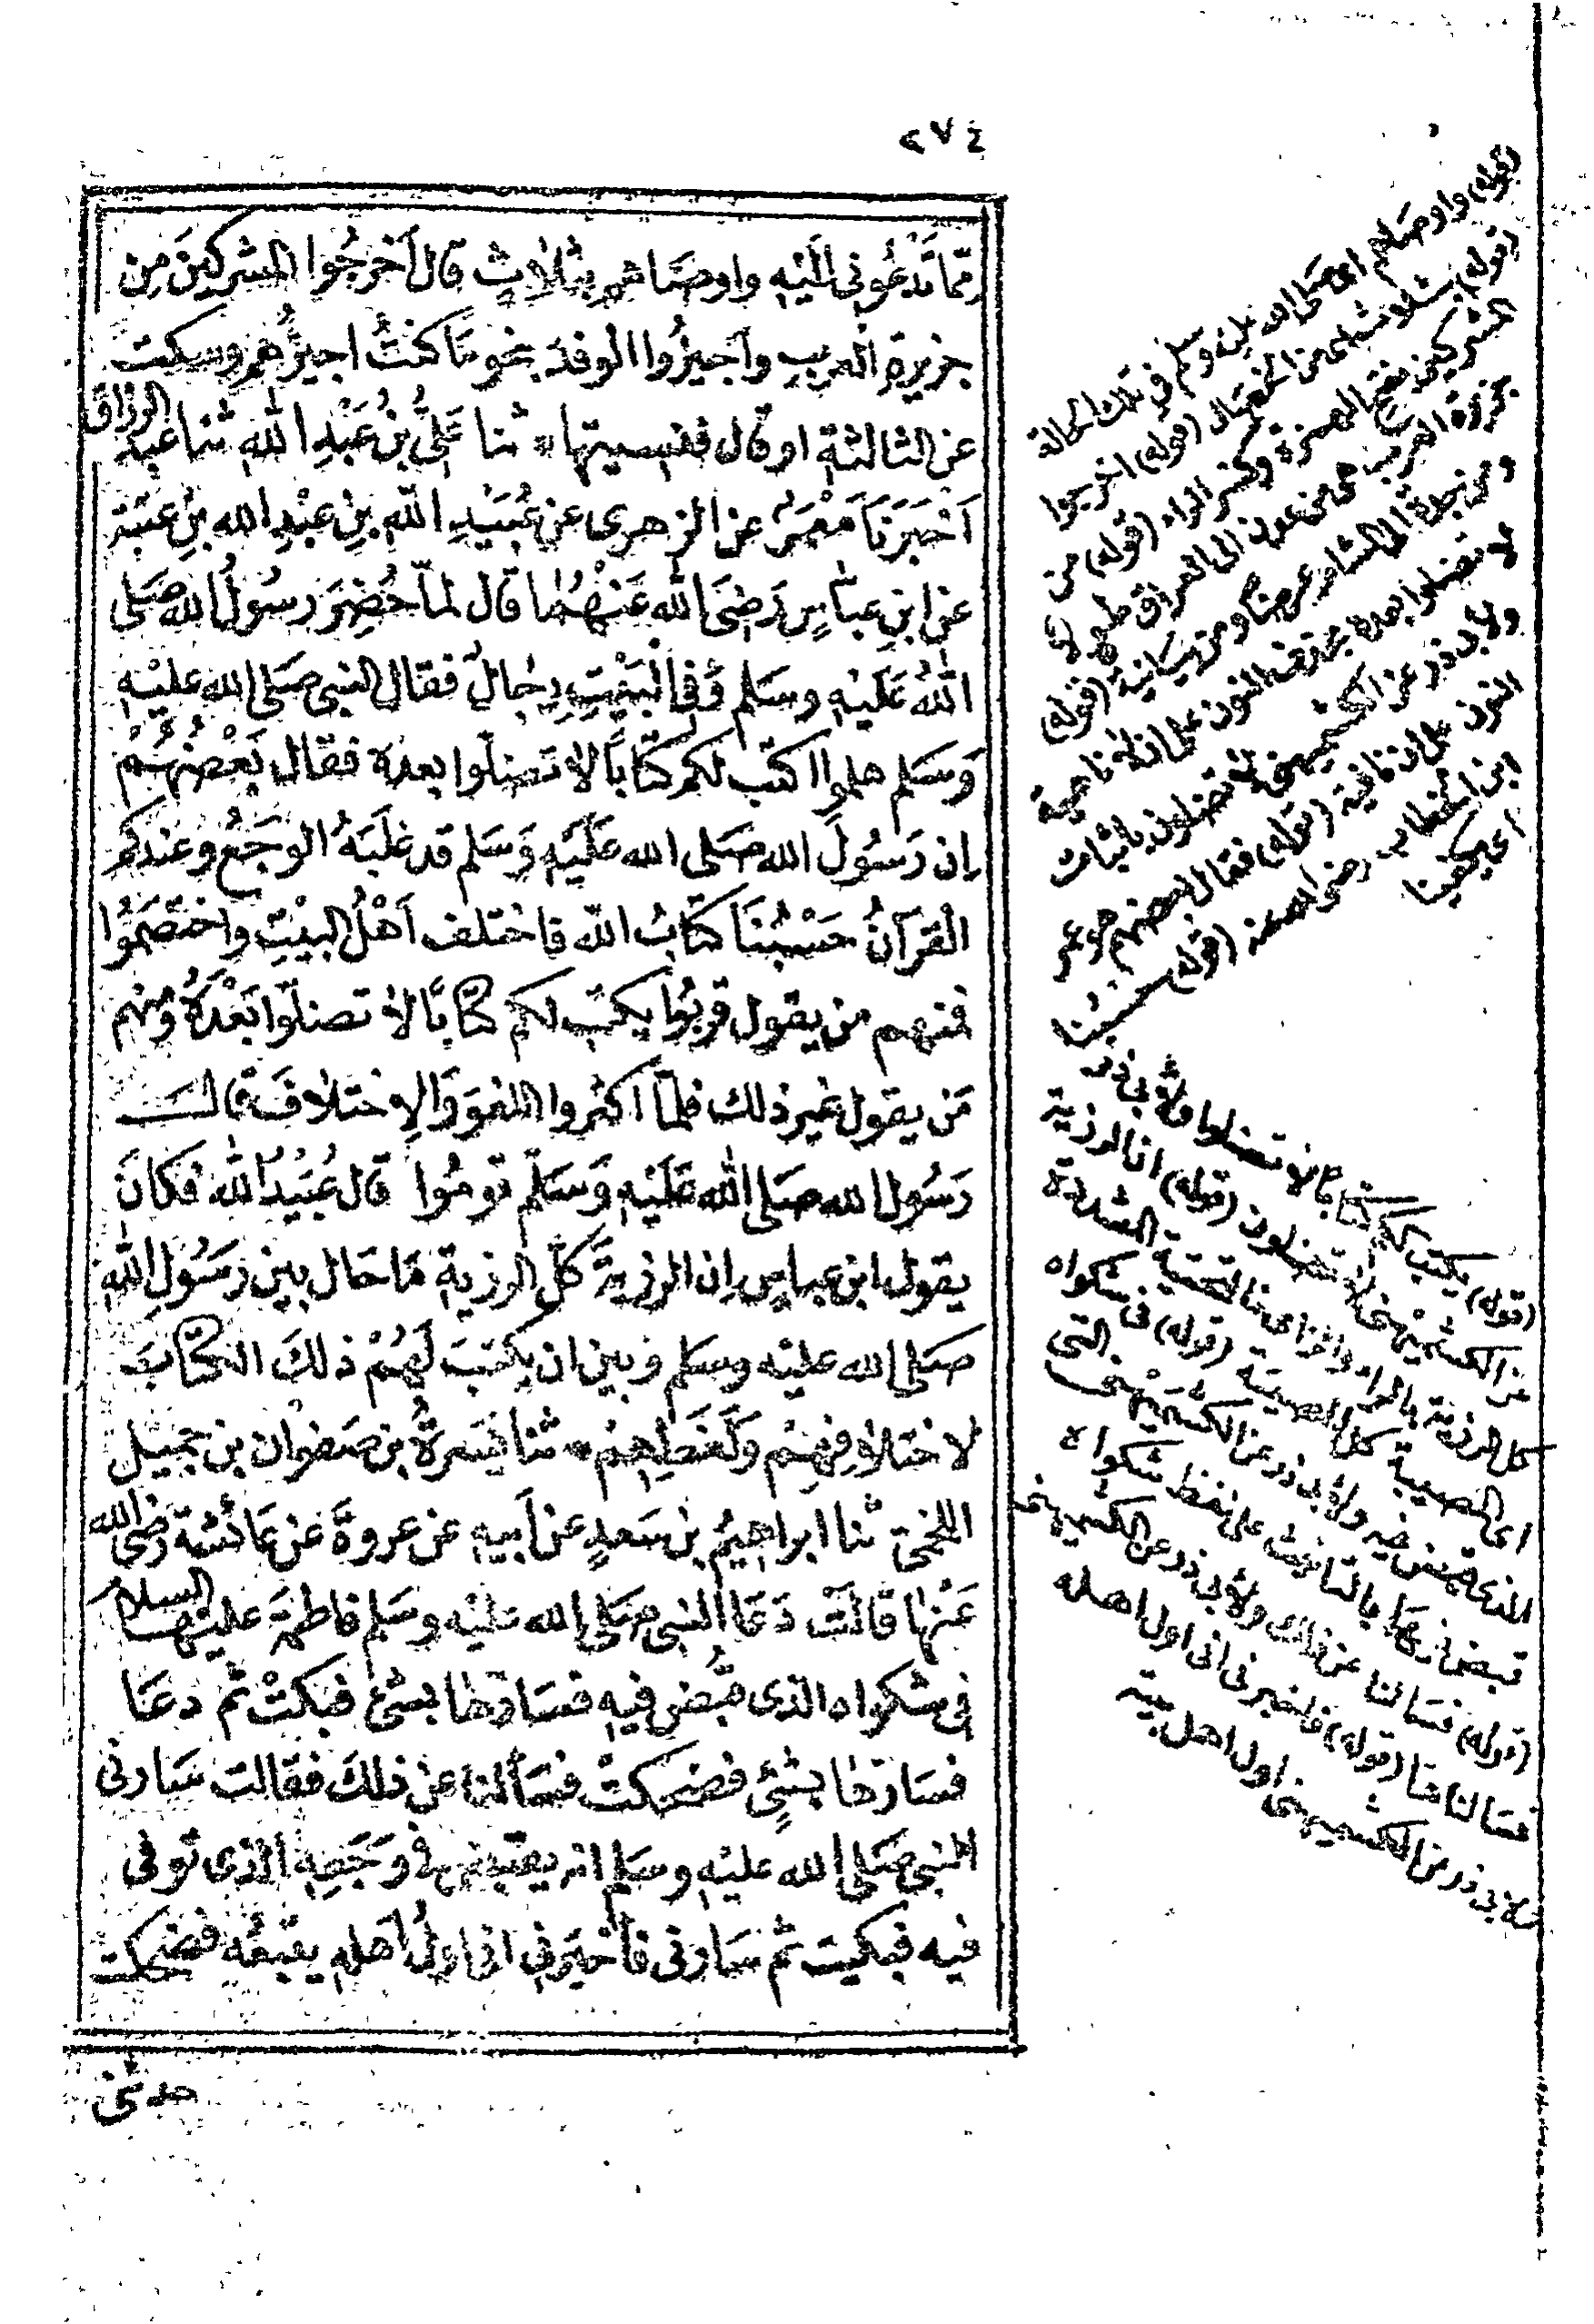 ٢٧٤
مما تدعوني اليه واوصاهم بثلاث قال أخرجوا المشركين من
جزيرة العرب وأجيزوا الوفد بنحو ما كنت اجيزهم وسكت
عن الثالثة او قال فنسيتها * ثنا علي بن عبد الله ثنا عبد الرزاق
أخبرنا معمر عن الزهري عن عبيد الله بن عبد الله بن عتبة
عن ابن عباس رضي الله عنهما قال لما حضر رسول الله صلى
الله عليه وسلم وفي البيت رجال فقال النبي صلى الله عليه
وسلم هلموا اكتب لكم كتابا لا تضلوا بعده فقال بعضهم
إن رسول الله صلى الله عليه وسلم قد غلبه الوجع وعندكم
القرآن حسبنا كتاب الله فاختلف أهل البيت واختصموا
فمنهم من يقول قربوا يكتب لكم كتابا لا تضلوا بعده ومنهم
من يقول غير ذلك فلما اكثروا اللغو والاختلاف قال
رسول الله صلى الله عليه وسلم قوموا قال عبيد الله فكان
يقول ابن عباس إن الرزية كل الرزية ما حال بين رسول الله
صلى الله عليه وسلم وبين ان يكتب لهم ذلك الكتاب
لاختلافهم ولغطهم * ثنا يسرة بن صفوان بن جميل
اللخمي ثنا ابراهيم بن سعد عن أبيه عن عروة عن عائشة رضي الله
عنها قالت دعا النبي صلى الله عليه وسلم فاطمة عليها السلام
في شكواه الذي قبض فيه فسارها بشئ فبكت ثم دعا
فسارها بشئ فضحكت فسألنا عن ذلك فقالت سارني
النبي صلى الله عليه وسلم انه يقبض في وجعه الذي توفي
فيه فبكيت ثم سارني فأخبرني اني اول أهله يتبعه فضحكت
حدثني
(قوله) واوصاهم اي صلى الله عليه وسلم في تلك الحالة
(قوله) بثلاث اي من الخصال (قوله) اخرجوا
المشركين بفتح الهمزة وكسر الراء (قوله) من
جزيرة العرب هي من عدن الى العراق طولا
ومن جدة الى الشام عرضا (قوله)
لا تضلوا بعده بحذف النون على ان لا ناهية
ولابي ذر عن الكشميهني لا تضلون باثبات
النون على انها نافية (قوله) فقال بعضهم هو عمر
ابن الخطاب رضي الله عنه (قوله) حسبنا
اي يكفينا
(قوله) يكتب لكم كتابا لا تضلوا ولابي ذر
عن الكشميهني لا تضلون (قوله) ان الرزية
كل الرزية بالراء والزاي فالتحتية المشددة
اي المصيبة كل المصيبة (قوله) في شكواه
الذي قبض فيه ولابي ذر عن الكشميهني التي
قبض فيها بالتأنيث على لفظ شكواه
(قوله) فسألنا عن ذلك ولابي ذر عن الكشميهني
فسألناها (قوله) فاخبرني اني اول اهله
ولابي ذر عن الكشميهني اول اهل بيته